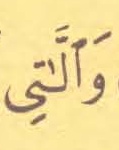 وَٱلَّٰتِي